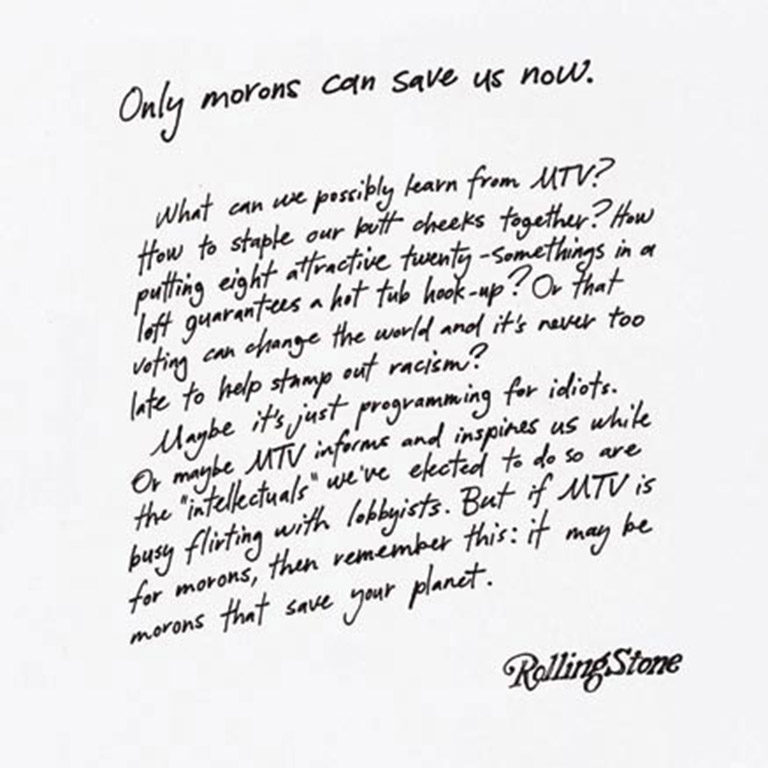 Only morons can save us now.
What can we possibly learn from MTV?
How to staple our butt cheeks together? How
putting eight attractive twenty-somethings in a
loft guarantees a hot tub hook-up? Or that
voting can change the world and it's never too
late to help stamp out racism?
Maybe it's just programming for idiots.
Or maybe MTV informs and inspires us while
the "intellectuals" we've elected to do so are
busy flirting with lobbyists. But if MTV is
for morons, then remember this: it may be
morons that save your planet.
RollingStone